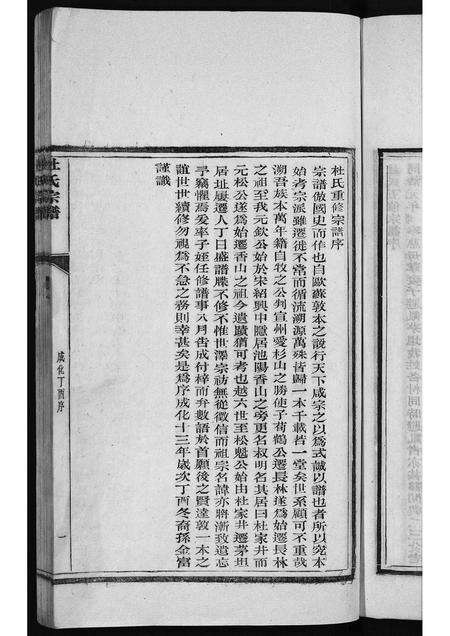 杜氏重修宗譜序
宗譜倣國史而作也自歐蘇敦本之說行天下咸宗之以爲式誠以譜也者所以究本
始考宗派雖遷徙不常而循流溯源萬殊皆歸一本千載若一堂矣世系顧可不重哉
溯吾族本萬年籍自牧之公判宣州愛杉山之勝使子荀鶴公遷長林遂爲始遷長林
之祖至我元欽公始於宋紹興中隱居池陽香山之旁更名叔明名其居曰杜家井而
元松公遂爲始遷香山之祖今遺蹟猶可考也越六世至松魁公始由杜家井遷茅坦
居址屢遷人丁日盛譜牒不修不惟世澤宗祊無從徵信而祖宗名諱亦將漸致遺忘
予竊懼焉爰率子姪任修譜事八月告成付梓而弁數語於首願後之賢達敦一本之
誼世世續修勿視爲不急之務則幸甚矣是爲序成化十三年歲次丁酉冬裔孫金富
謹識
杜氏宗譜
成化丁酉序
一